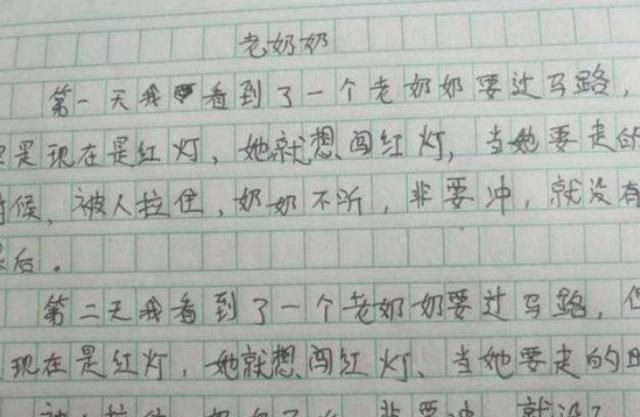 老奶奶
第一天我看到了一个老奶奶要过马路，
是现在是红灯，她就想闯红灯，当她要走的
时候，被人拉住，奶奶不听，非要冲，就没有
然后。
第二天我看到了一个老奶奶要过马路，但
现在是红灯，她就想闯红灯、当她要走的时
被人拉住 奶奶不 非要冲 就没